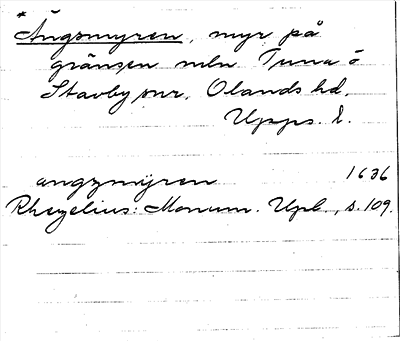 *Ängsmyren, myr på
gränsen mln Tuna o
Stavby snr, Olands hd,
Upps. l.
angzmÿren 1636
Rhezelius: Monum. Upl., s. 109.